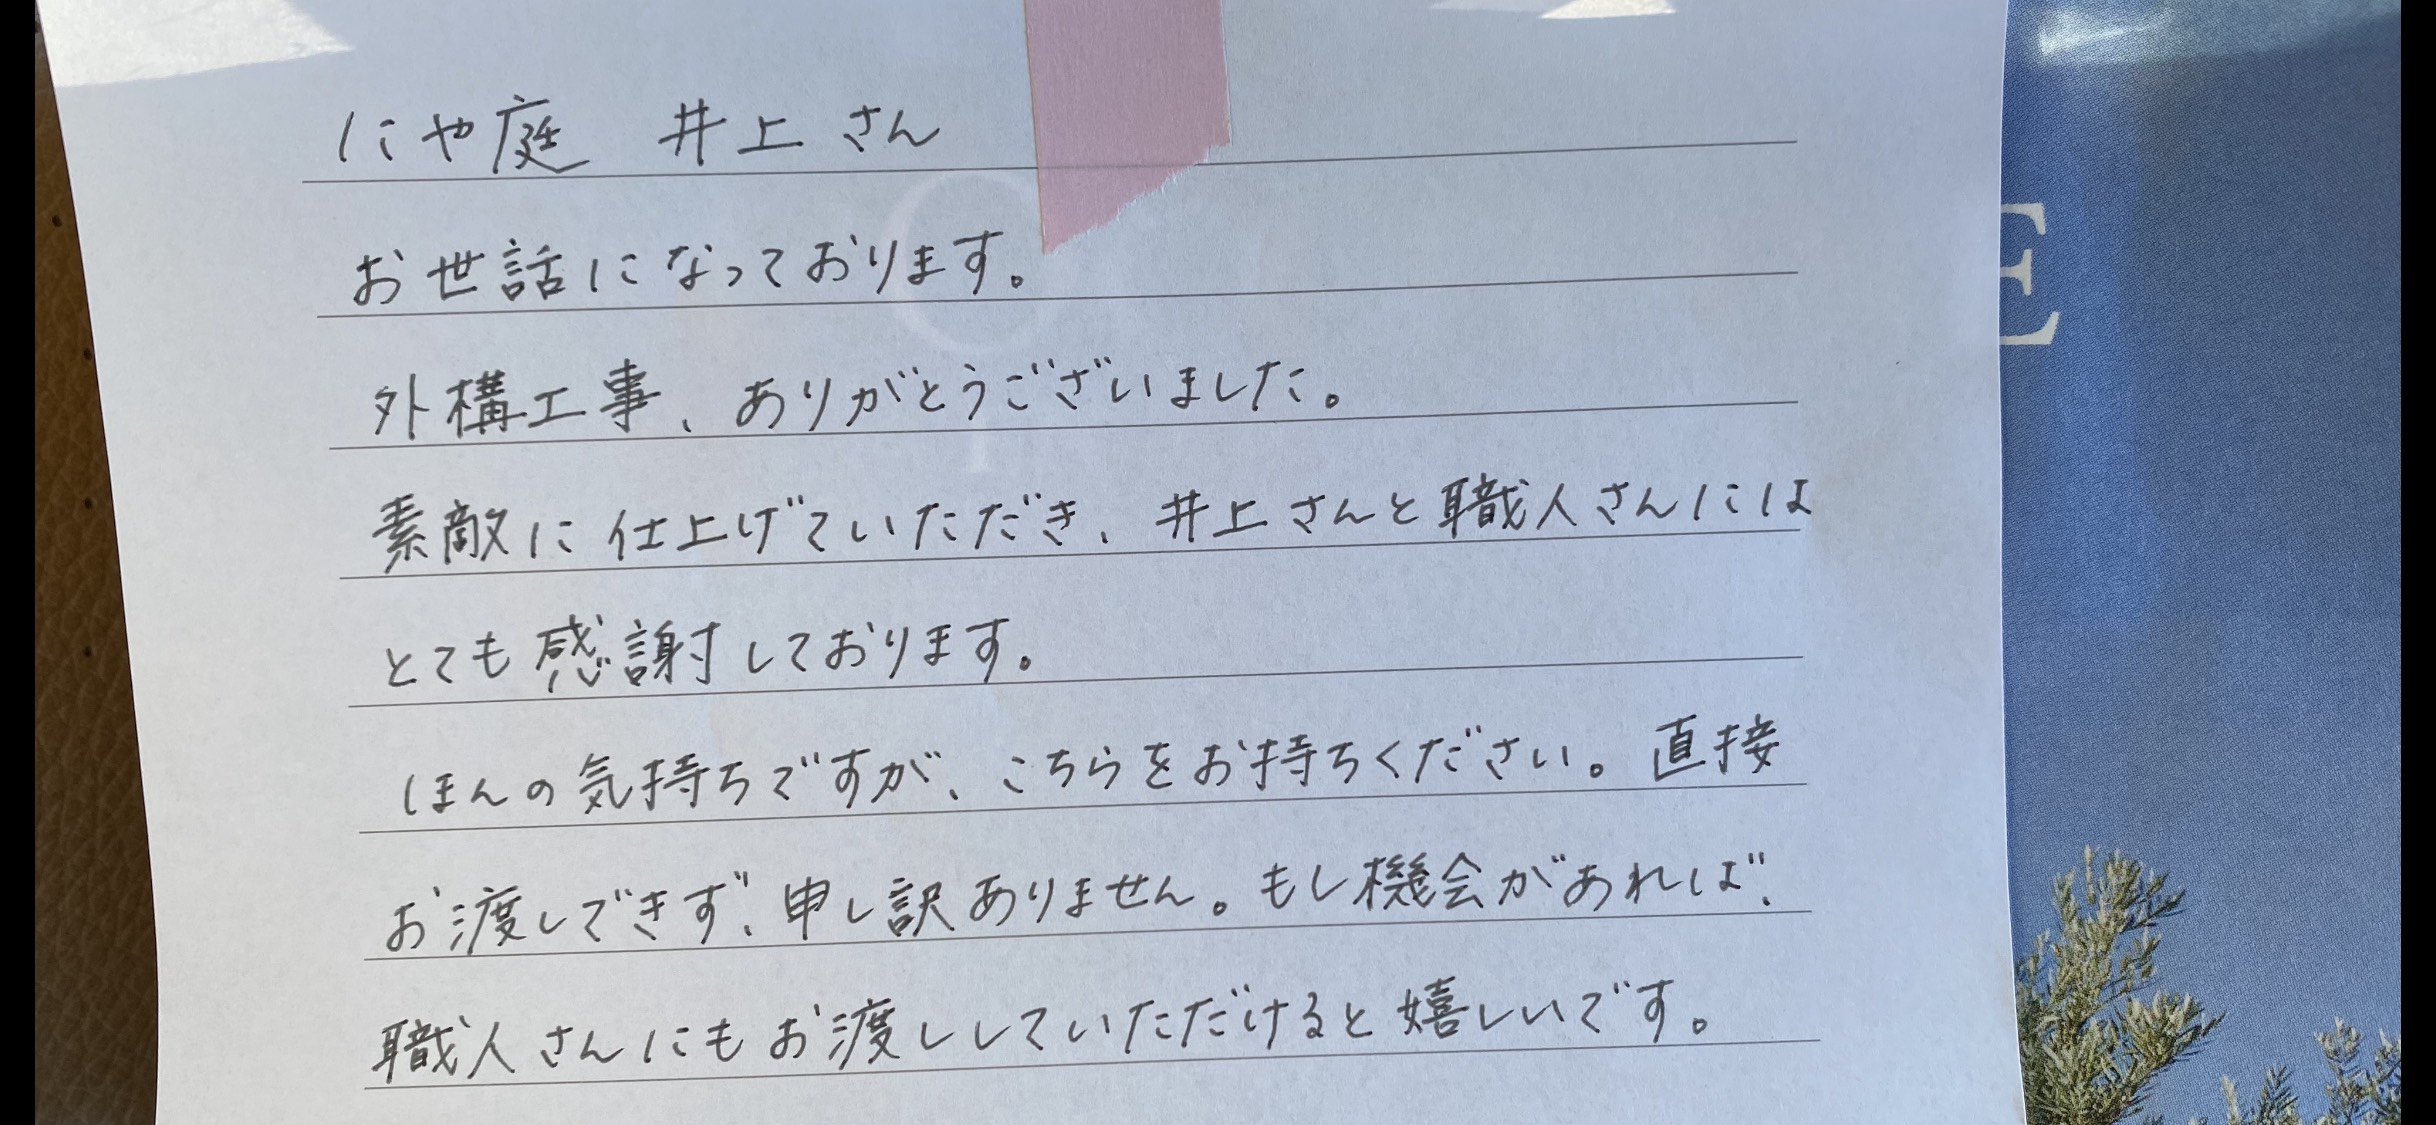 にや庭 井上さん
お世話になっております。
外構工事、ありがとうございました。
素敵に仕上げていただき、井上さんと職人さんには
とても感謝しております。
ほんの気持ちですが、こちらをお持ちください。直接
お渡しできず、申し訳ありません。もし機会があれば、
職人さんにもお渡ししていただけると嬉しいです。
E